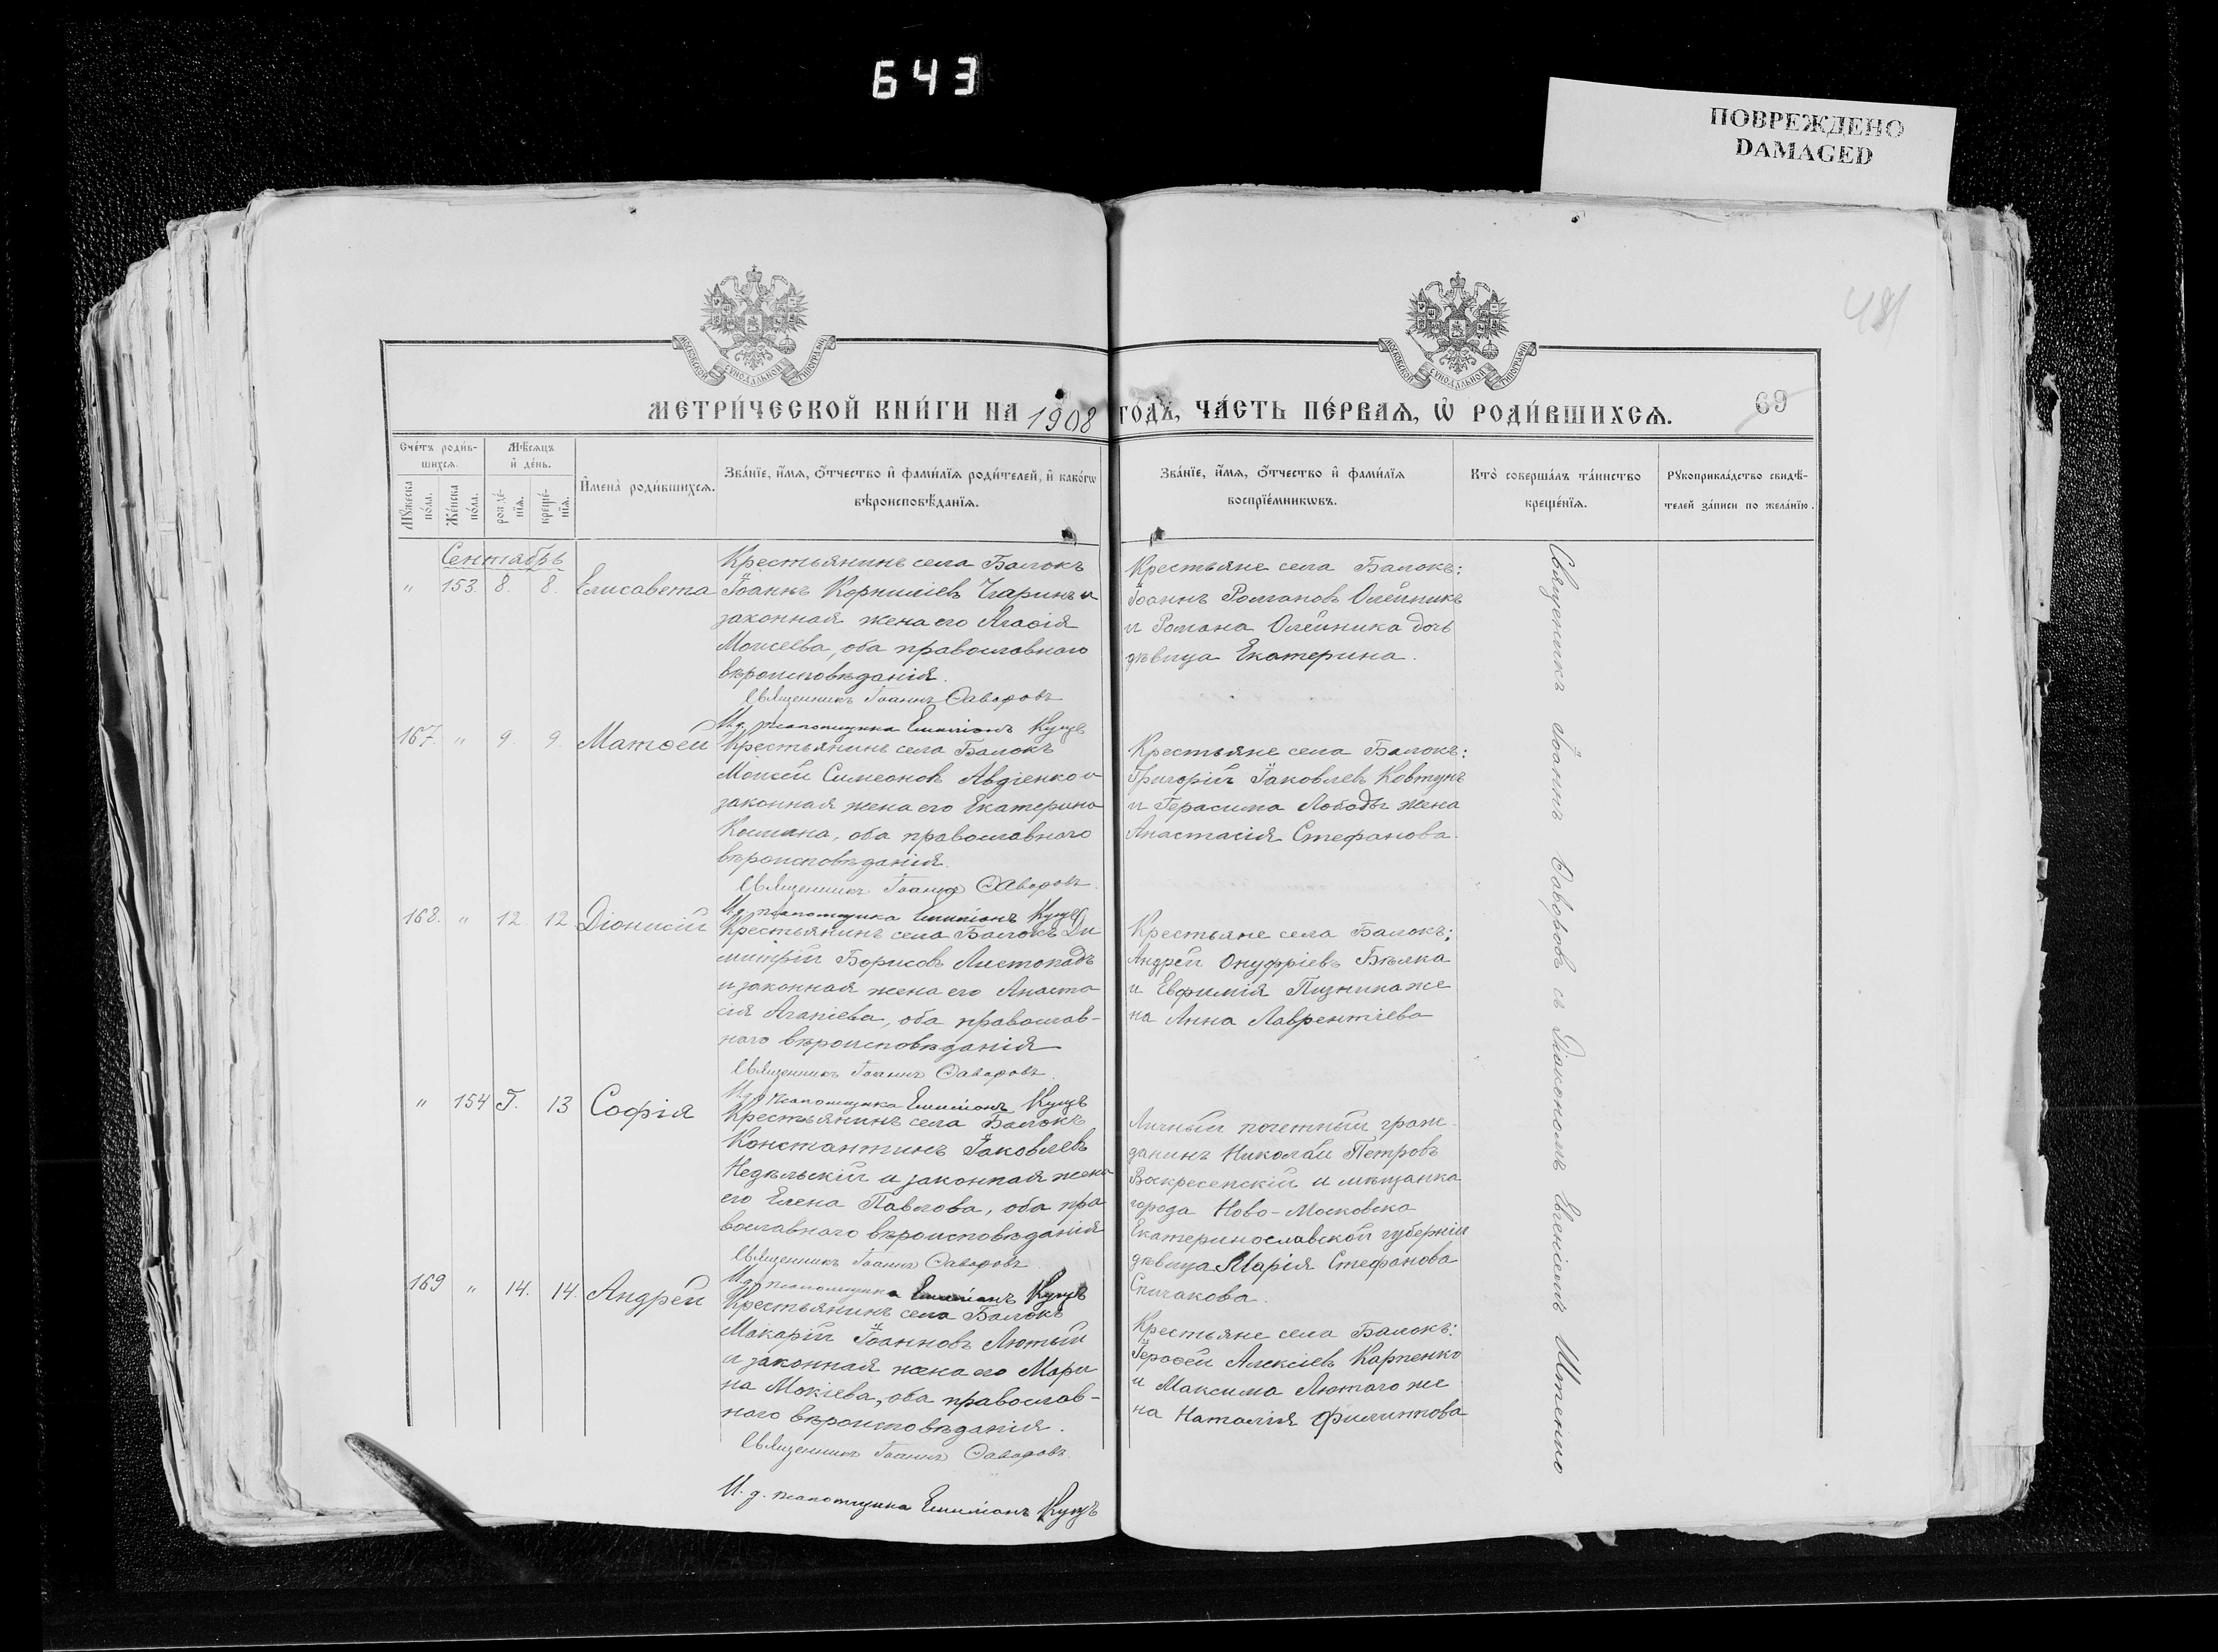 643
ПОВРЕЖДЕНО
DAMAGED
481
МОСКОВСКОЙ СѴНОДАЛЬНОЙ ТИПОГРАФІИ
МОСКОВСКОЙ СѴНОДАЛЬНОЙ ТИПОГРАФІИ
МЕТРИ́ЧЕСКОЙ КНИ́ГИ НА 1908 ГОДЪ, ЧА́СТЬ ПЕ́РВАѦ, Ѡ҆ РОДИ́ВШИХСѦ.
69
Сче́тъ роди́в-
шихсѧ.
Мѣ́сѧцъ
и҆ де́нь.
Мꙋ́жеска по́ла.
Же́нска по́ла.
рожде́-нїѧ.
креще́-нїѧ.
И҆мена̀ роди́вшихсѧ.
Зва́нїе, и҆́мѧ, ѻ҆́тчество и҆ фами́лїѧ роди́телей, и҆ како́гѡ
вѣроисповѣ́данїѧ.
Зва́нїе, и҆́мѧ, ѻ҆́тчество и҆ фами́лїѧ
воспрїе́мникѡвъ.
Кто̀ соверша́лъ та́инство
креще́нїѧ.
Рꙋкоприкла́дство свидѣ́-
телей за́писи по жела́нїю.
Сентябрь
" 153. 8. 8. Елисавета
Крестьянинъ села Балокъ
Іоаннъ Корниліев Чаринъ и
законная жена его Агаѳія
Моисеева, оба православнаго
вѣроисповѣданія.
Священникъ Іоаннъ Саворовъ
И. д. псаломщика Емиліанъ Куцъ
Крестьяне села Балокъ:
Іоаннъ Романовъ Олейникъ
и Романа Олейника дочь
дѣвица Екатерина.
167. " 9. 9. Матѳей
Крестьянинъ села Балокъ
Моисей Симеоновъ Авдіенко и
законная жена его Екатерина
Космина, оба православнаго
вѣроисповѣданія.
Священникъ Іоаннъ Саворовъ.
И. д. псаломщика Емиліанъ Куцъ
Крестьяне села Балокъ:
Григорій Іаковлевъ Ковтунъ
и Герасима Лободы жена
Анастасія Стефанова.
168. " 12. 12 Діонисій
Крестьянинъ села Балокъ Ди
митрій Борисовъ Листопадъ
и законная жена его Анаста
сія Агапіева, оба православ-
наго вѣроисповѣданія
Священникъ Іоаннъ Саворовъ.
И. д. псаломщика Емиліанъ Куцъ
Крестьяне села Балокъ:
Андрей Онуфріевъ Бѣлка
и Евфимія Пизника же
на Анна Лаврентіева
" 154 13 Софія
Крестьянинъ села Балокъ
Константинъ Іаковлевъ
Недѣльскій и законная жена
его Елена Павлова, оба пра
вославнаго вѣроисповѣданія
Священникъ Іоаннъ Саворовъ
И. д. псаломщика Емиліанъ Куцъ
Личный почетный граж
данинъ Николай Петровъ
Воскресенскій и мѣщанка
города Ново-Московска
Екатеринославской губерніи
дѣвица Марія Стефанова
Спичакова.
169 " 14. 14. Андрей
Крестьянинъ села Балокъ
Макарій Іоанновъ Лютый
и законная жена его Мари
на Мокіева, оба православ-
наго вѣроисповѣданія.
Священникъ Іоаннъ Саворовъ.
И. д. псаломщика Емиліанъ Куцъ
Крестьяне села Балокъ:
Іероѳей Алексіевъ Карпенко
и Максима Лютаго же
на Наталія Филиппова
Священникъ Іоаннъ Саворовъ съ Діакономъ Евгеніемъ Штенко